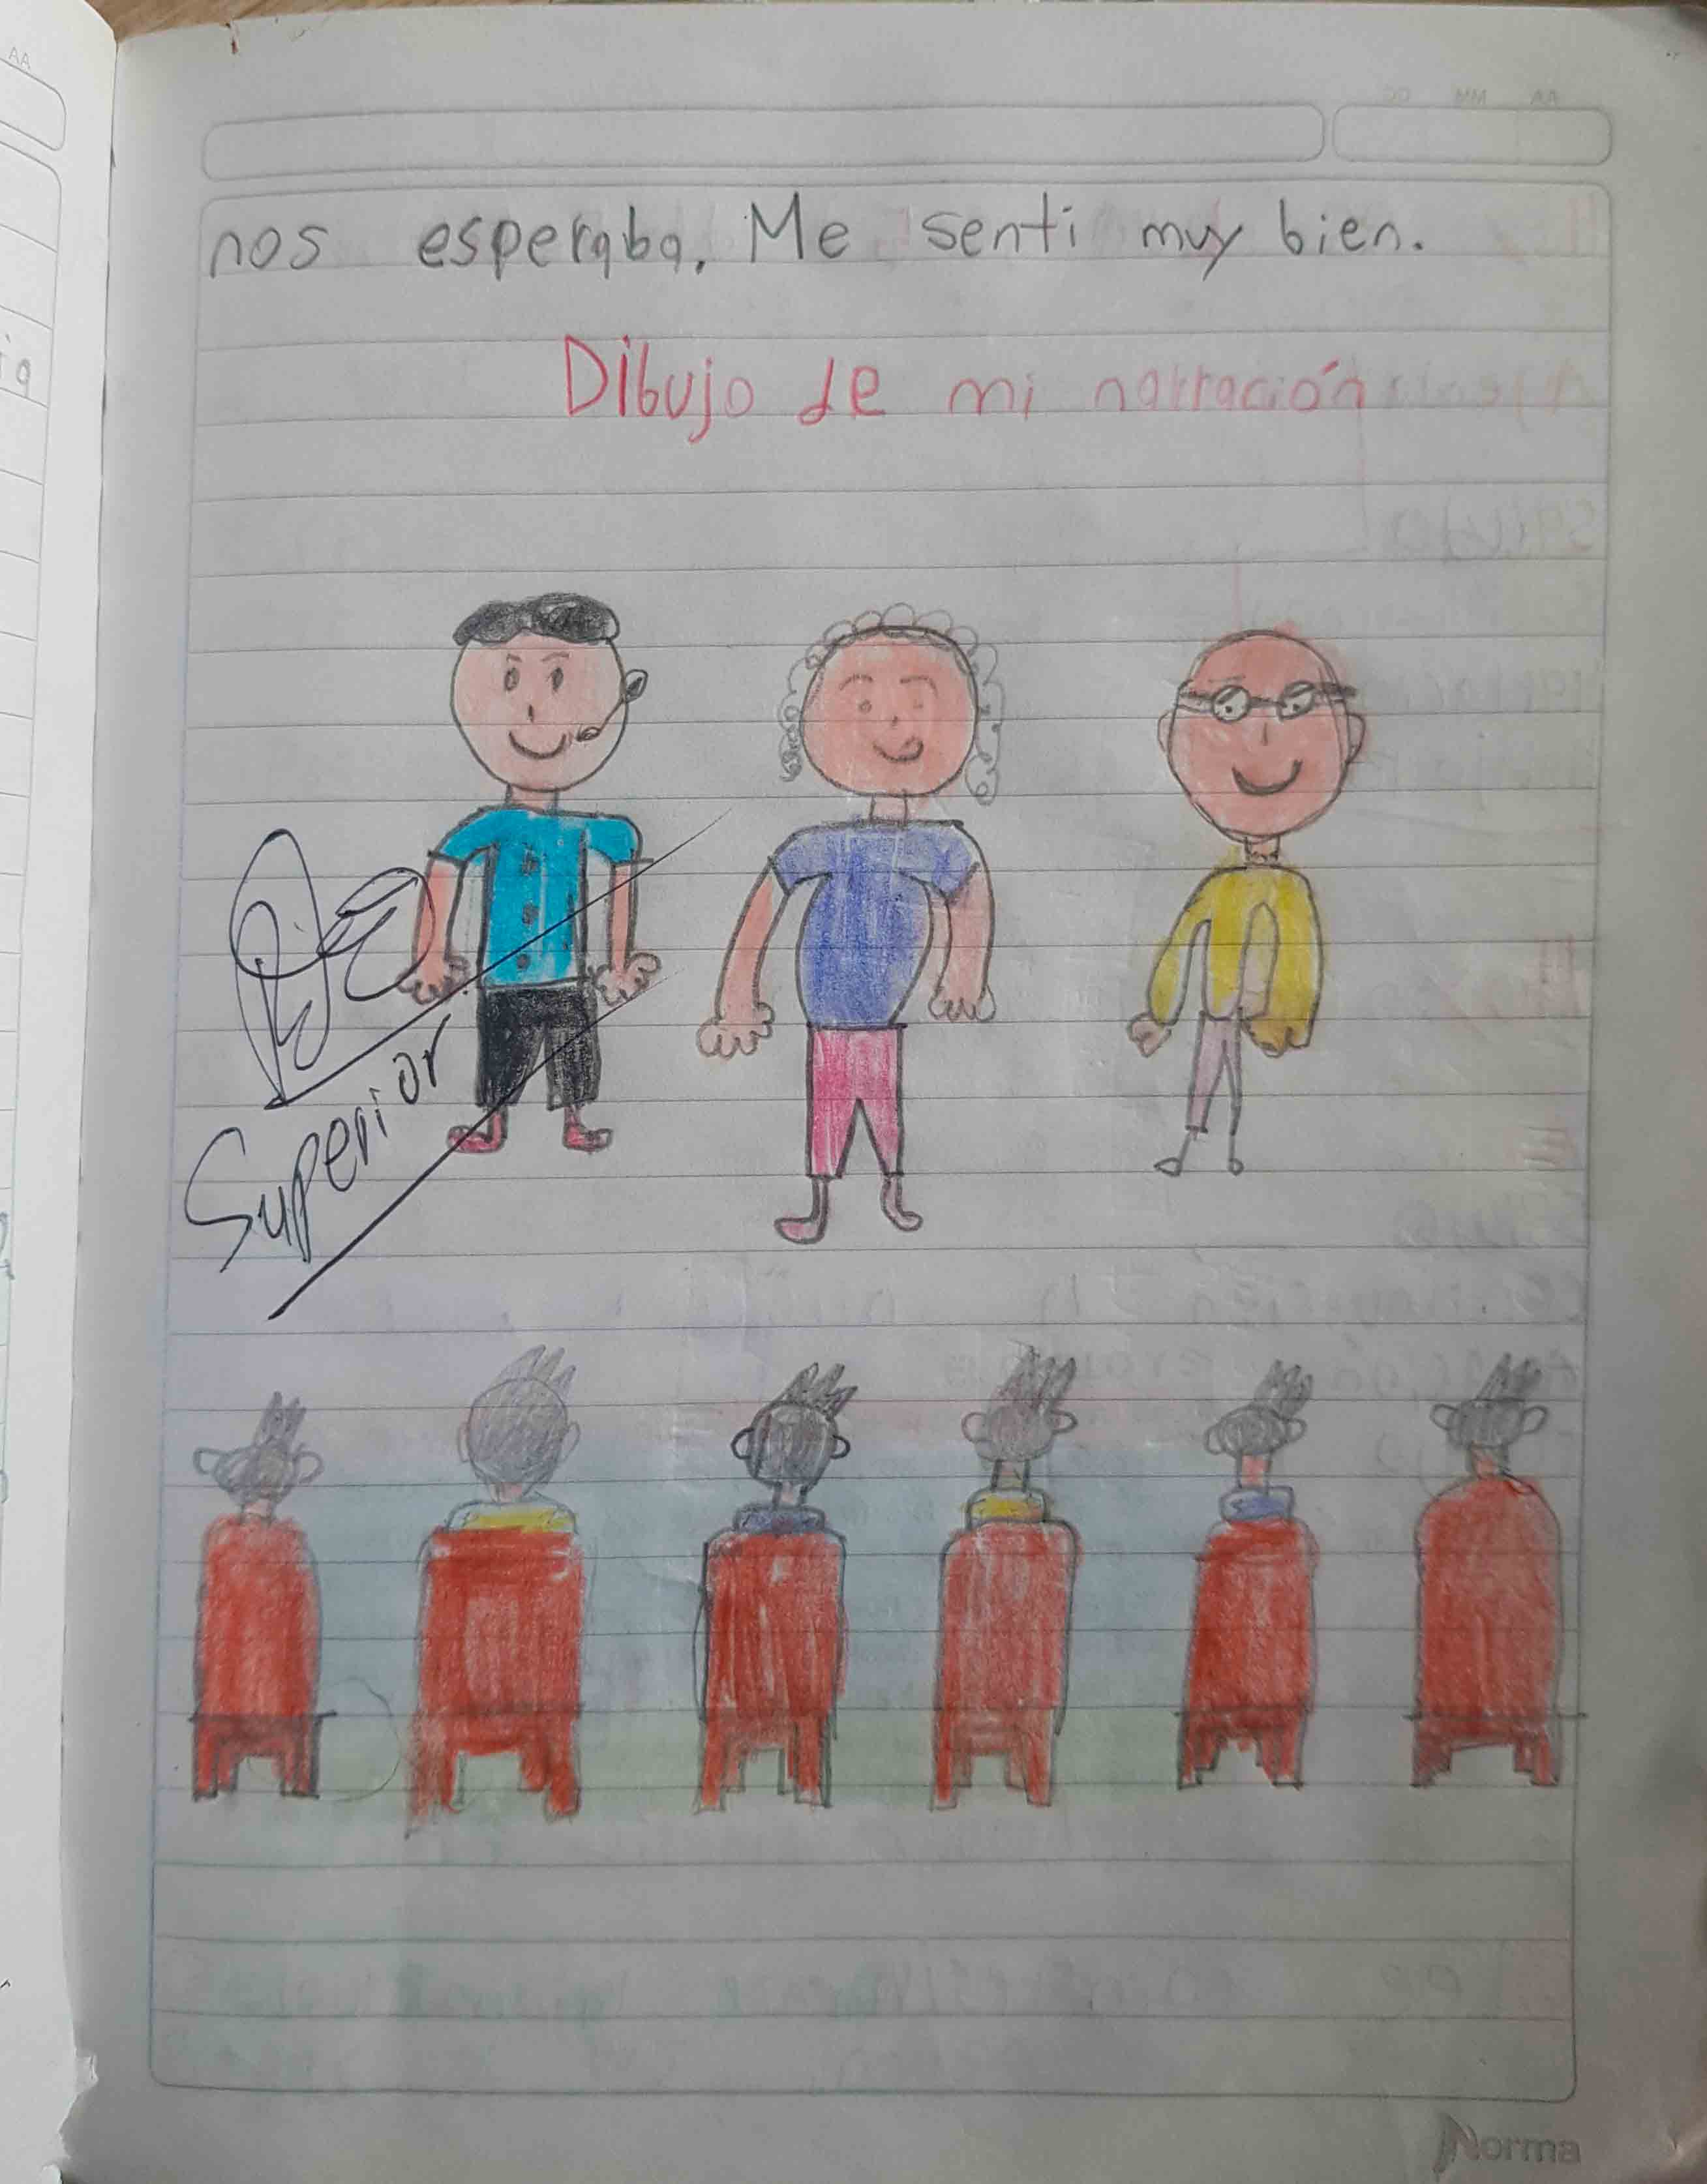 nos esperaba. Me senti muy bien.
Dibujo de mi narración
Superior
Norma